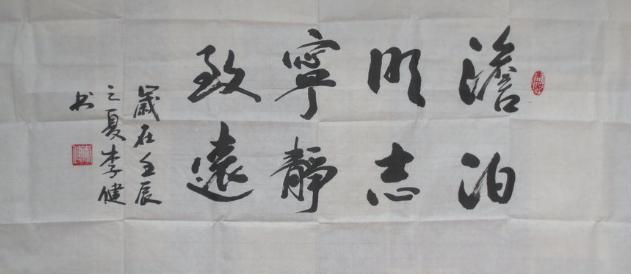 澹泊
明志
寧靜
致遠
歲在壬辰
之夏李健
书